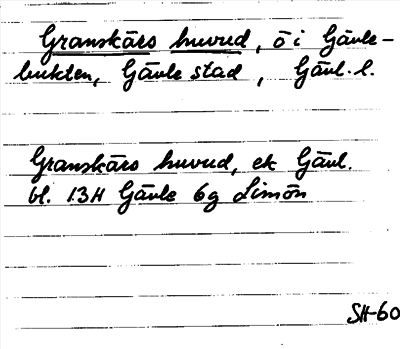 Granskärs huvud, ö i Gävle-
bukten, Gävle stad, Gävl. l.
Granskärs huvud, ek Gävl.
bl. 13H Gävle 6g Limön
SH-60